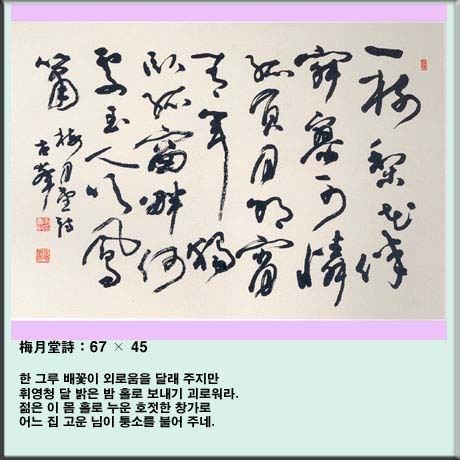 一株梨花伴
寂寥可憐
孤負月明宵
靑年獨
臥孤窗畔何
處玉人吹鳳
簫 梅月堂詩
古峯
梅月堂詩 : 67 × 45
한 그루 배꽃이 외로움을 달래 주지만
휘영청 달 밝은 밤 홀로 보내기 괴로워라.
젊은 이 몸 홀로 누운 호젓한 창가로
어느 집 고운 님이 퉁소를 불어 주네.